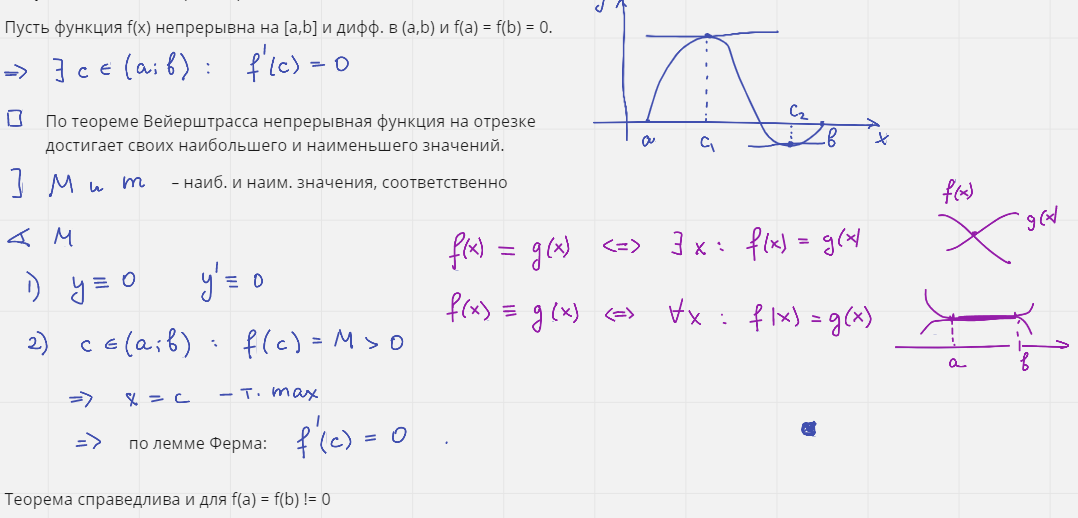 Пусть функция f(x) непрерывна на [a,b] и дифф. в (a,b) и f(a) = f(b) = 0.
=> ∃ c ∈ (a; b) : f'(c) = 0
□ По теореме Вейерштрасса непрерывная функция на отрезке
достигает своих наибольшего и наименьшего значений.
] M и m – наиб. и наим. значения, соответственно
∢ M
1) y ≡ 0 y' ≡ 0
2) c ∈ (a; b) : f(c) = M > 0
=> x = c – т. max
=> по лемме Ферма: f'(c) = 0 .
Теорема справедлива и для f(a) = f(b) != 0
y
a c₁ c₂ b x
f(x) = g(x) <=> ∃ x : f(x) = g(x)
f(x) ≡ g(x) <=> ∀x : f(x) = g(x)
f(x)
g(x)
a b